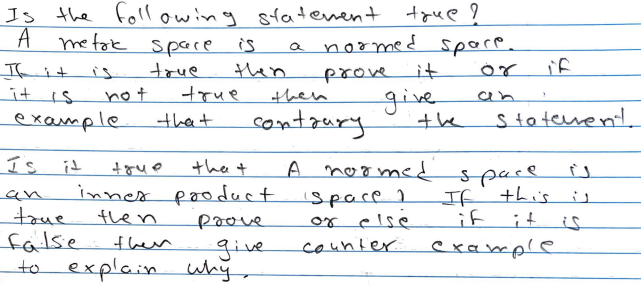 Is the following statement true?
A metric space is a normed space.
If it is true then prove it or if
it is not true then give an
example that contrary the statement.
Is it true that A normed space is
an inner product space? If this is
true then prove or else if it is
false then give counter example
to explain why.